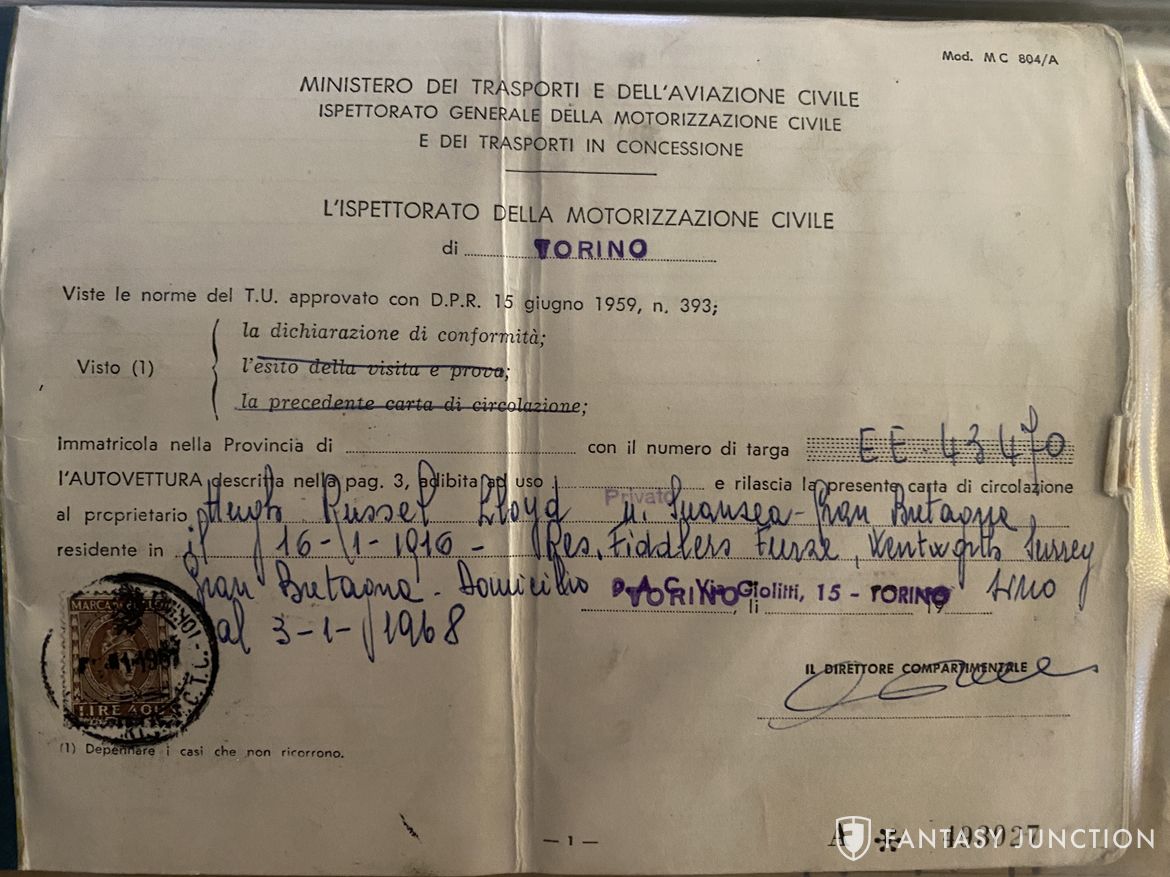 Mod. MC 804/A
MINISTERO DEI TRASPORTI E DELL'AVIAZIONE CIVILE
ISPETTORATO GENERALE DELLA MOTORIZZAZIONE CIVILE
E DEI TRASPORTI IN CONCESSIONE
L'ISPETTORATO DELLA MOTORIZZAZIONE CIVILE
di TORINO
Viste le norme del T.U. approvato con D.P.R. 15 giugno 1959, n. 393;
la dichiarazione di conformità;
Visto (1) l'esito della visita e prova;
la precedente carta di circolazione;
Immatricola nella Provincia di con il numero di targa EE 43470
l'AUTOVETTURA descritta nella pag. 3, adibita ad uso Privato e rilascia la presente carta di circolazione
al proprietario Hugh Russel Lloyd n. Swansea - Gran Bretagna
residente in il 16-1-1916 - Res. Fiddlers Furze, Wentworth Surrey
Gran Bretagna - Domicilio P.A.C. Via Giolitti, 15 - TORINO
TORINO, li 19
al 3-1-1968
MARCA DA
LIRE 400
IL DIRETTORE COMPARTIMENTALE
(1) Depennare i casi che non ricorrono.
— 1 —
A * 493927
FANTASY JUNCTION